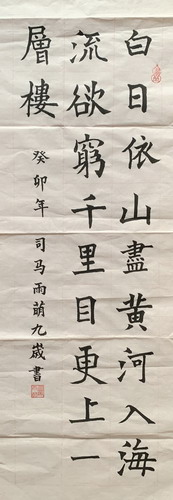 白日依山盡黄河入海
流欲窮千里目更上一
層樓
癸卯年 司马雨萌九歲書